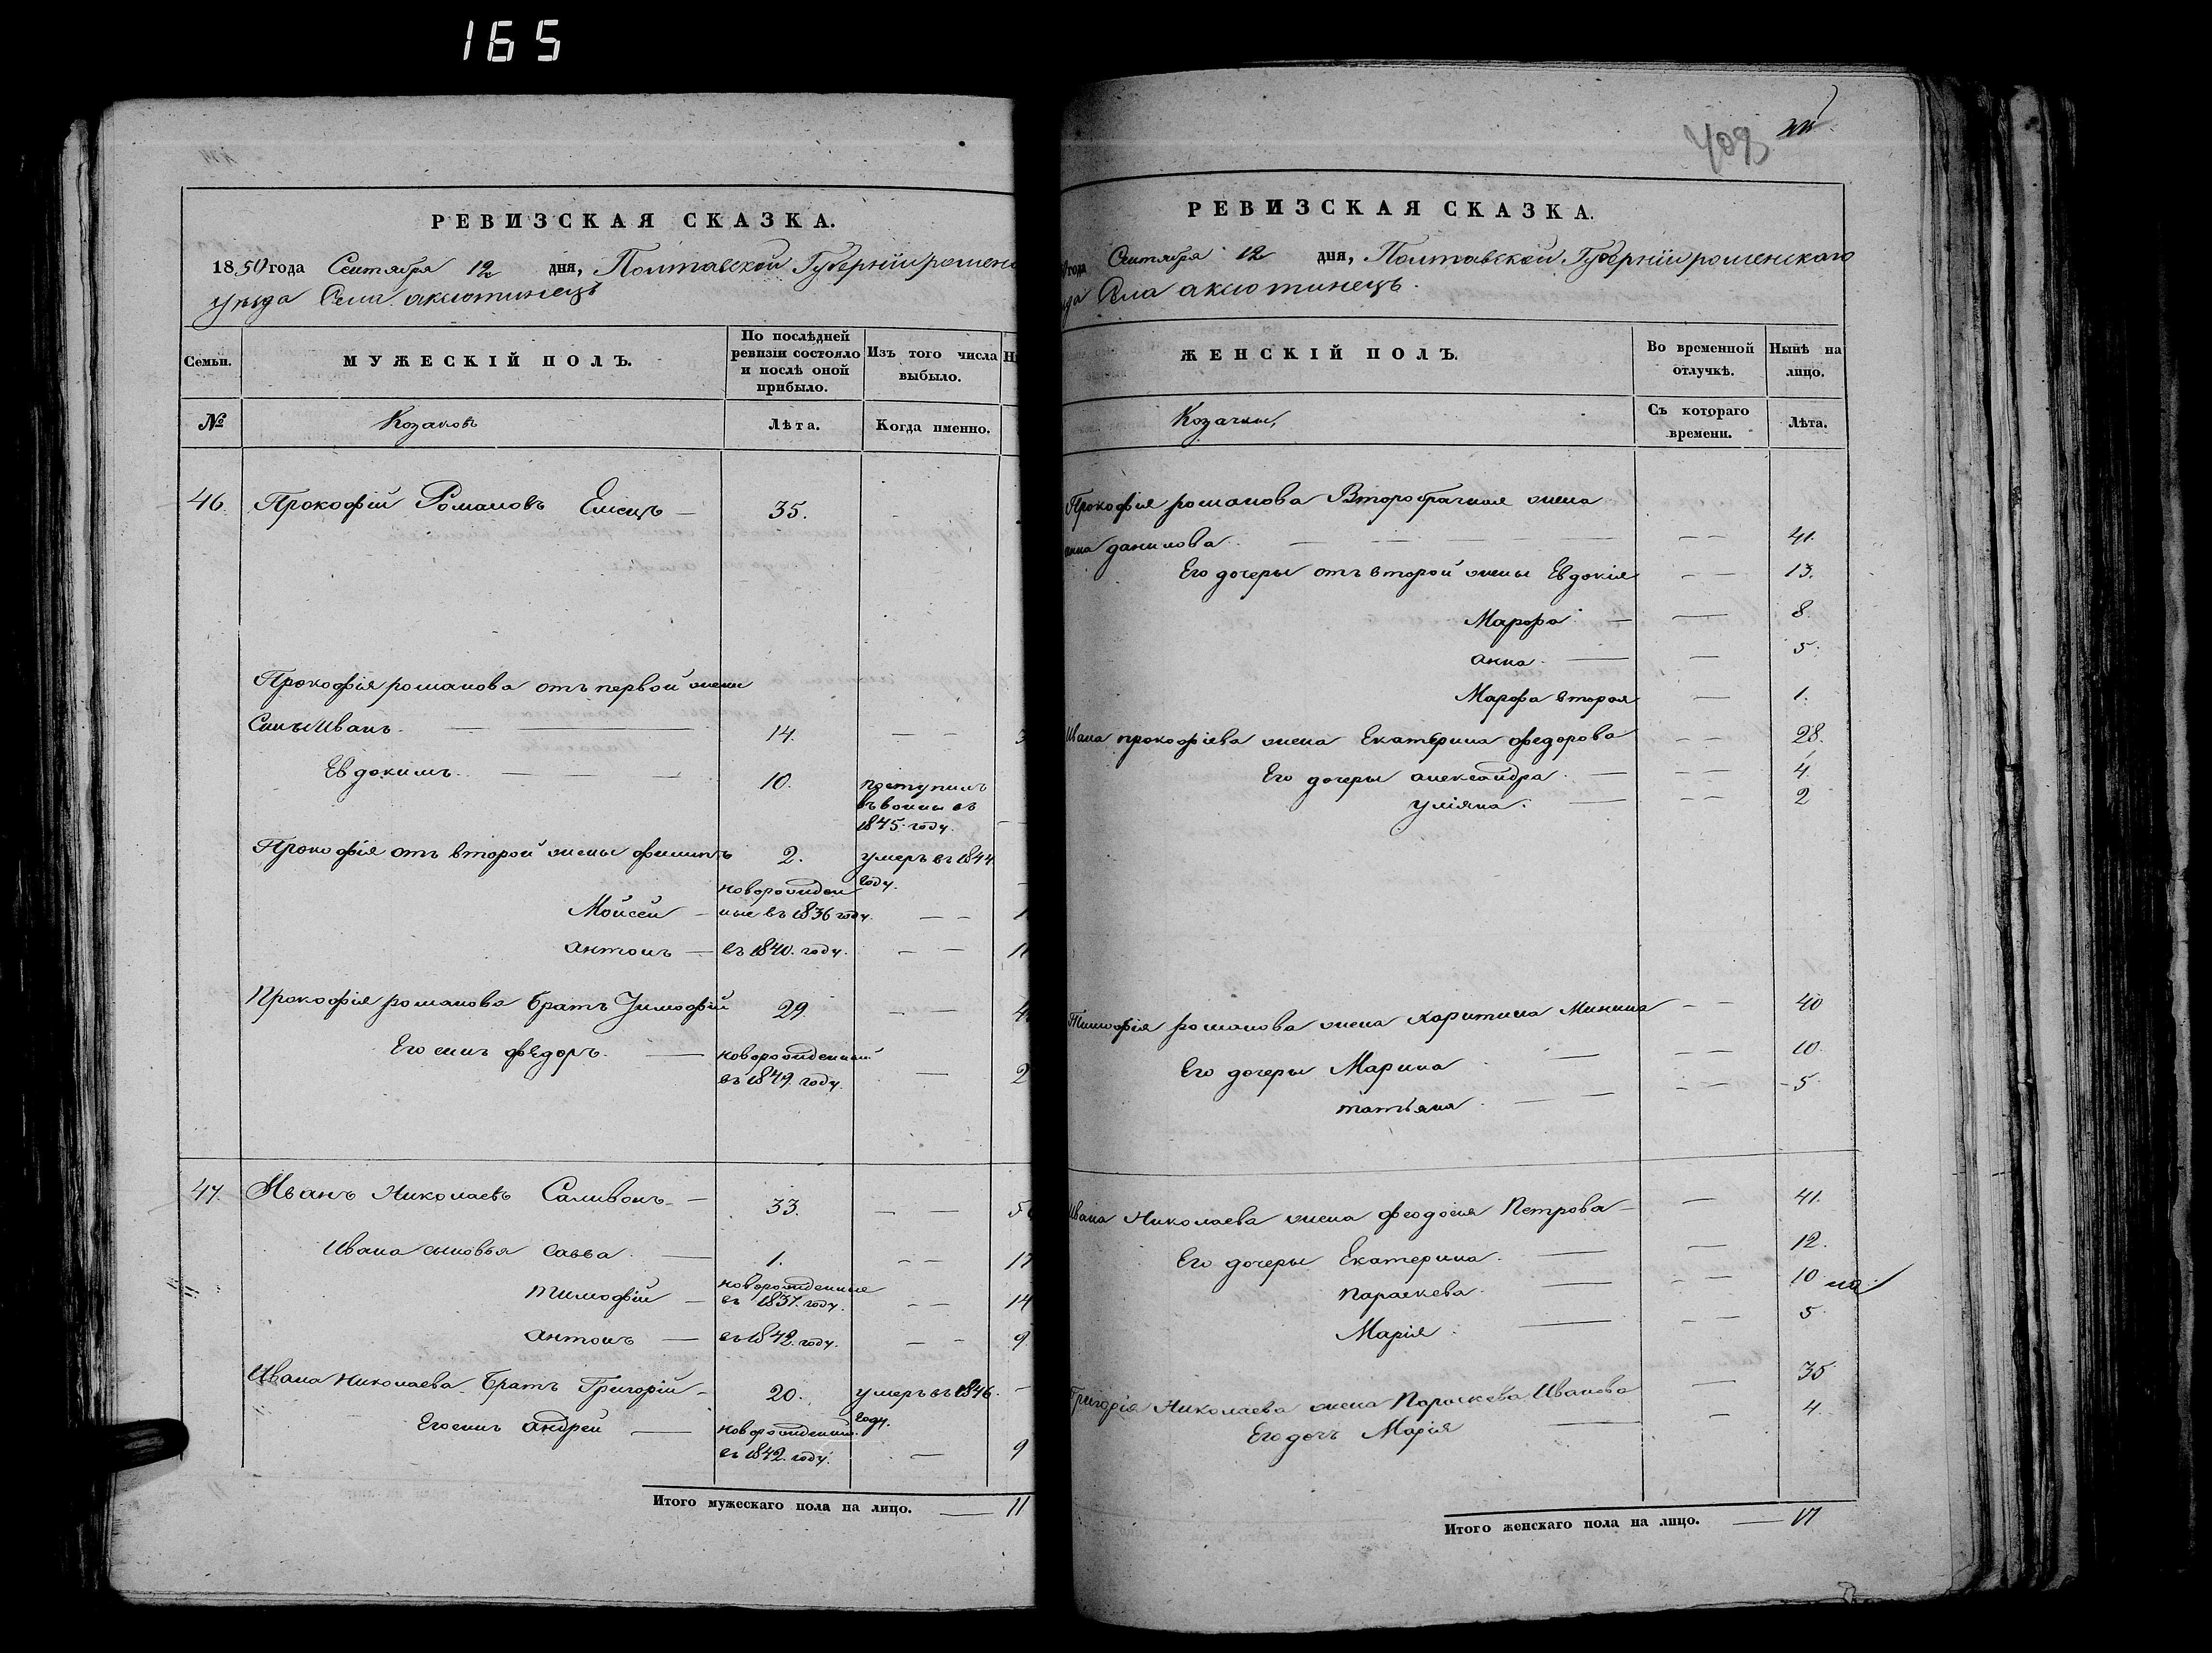 165
РЕВИЗСКАЯ СКАЗКА.
1850 года Сентября 12 дня, Полтавской Губернии роменс
уезда Села аксютинецъ
Семьи.
МУЖЕСКІЙ ПОЛЪ.
По послѣдней ревизіи состояло и послѣ оной прибыло.
Изъ того числа выбыло.
№
Козаковъ
Лѣта.
Когда именно.
46. Прокофій Романовъ — 35.
Прокофія романова отъ первой жены
Сынъ Иванъ. — 14. — — 3
Евдокимъ. — — — 10. поступилъ
въ
1845. году. —
Прокофія отъ второй жены филипъ 2. умеръ въ 1844
году.
новорожден
Мойсей — ные въ 1836 году. — — 1
антонъ — въ 1840. году. — — 1
Прокофія романова братъ Тимофій 29 — — 4
Его сынъ федоръ. — новорожденный
въ 1849. году. — 2
47. Иванъ Николаевъ Саливонъ — 33. — — 5
Ивана сыновья савва. — 1. — — 17
новорожденные
тимофій — въ 1837. году. — — 14
антонъ — въ 1842. году. — — 9
Ивана Николаева братъ Григорій — 20. умеръ въ 1846. —
году.
Его сынъ андрей — новорожденный
въ 1842. году. — 9
Итого мужескаго пола на лицо. — 11
409
РЕВИЗСКАЯ СКАЗКА.
года Сентября 12 дня, Полтавской Губерніи роменскаго
Села аксютинецъ.
ЖЕНСКІЙ ПОЛЪ.
Во временной отлучкѣ.
Нынѣ на лицо.
Козачки,
Съ котораго времени.
Лѣта.
Прокофія романова Второбрачная жена
анна данилова. — — — — — — 41.
Его дочеры отъ второй жены Евдокія — — 13.
Марфа — — 8.
анна. — — 5.
Марфа вторая — 1.
Ивана прокофіева жена Екатерина федорова — — 28.
Его дочеры александра. — — — 4.
уліяна. — — — 2
Тимофія романова жена харитина Минина — — 40
Его дочеры Марина — — — 10.
татіяна — — — — 5.
Ивана Николаева жена феодосія Петрова — — 41.
Его дочеры Екатерина. — — 12.
параскева. — — — 10
Марія. — — — 5.
Григорія Николаева жена Параскева Иванова — 35
Его дочь Марія — — 4.
Итого женскаго пола на лицо. — 17